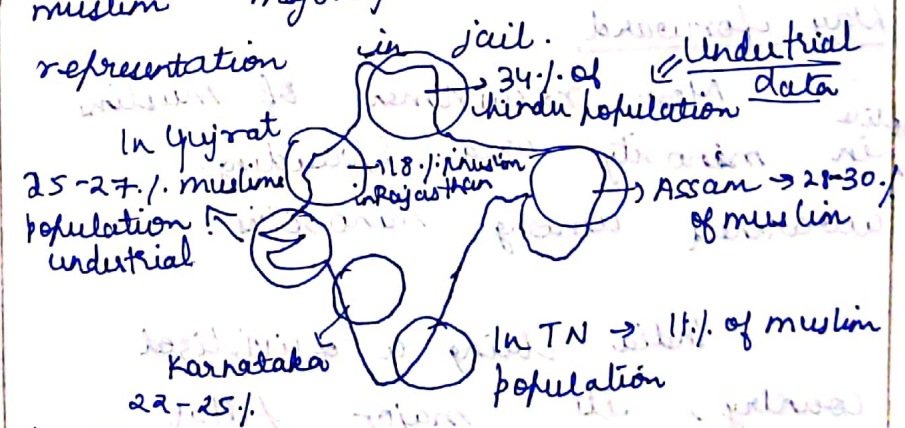 muslim
representation in jail.
Undertrial
data
34% of
hindu population
In Gujrat
25-27% muslims
population
undertrial
18% muslim
in Rajasthan
Assam → 28-30%
of muslim
In TN → 11% of muslim
population
Karnataka
22-25%